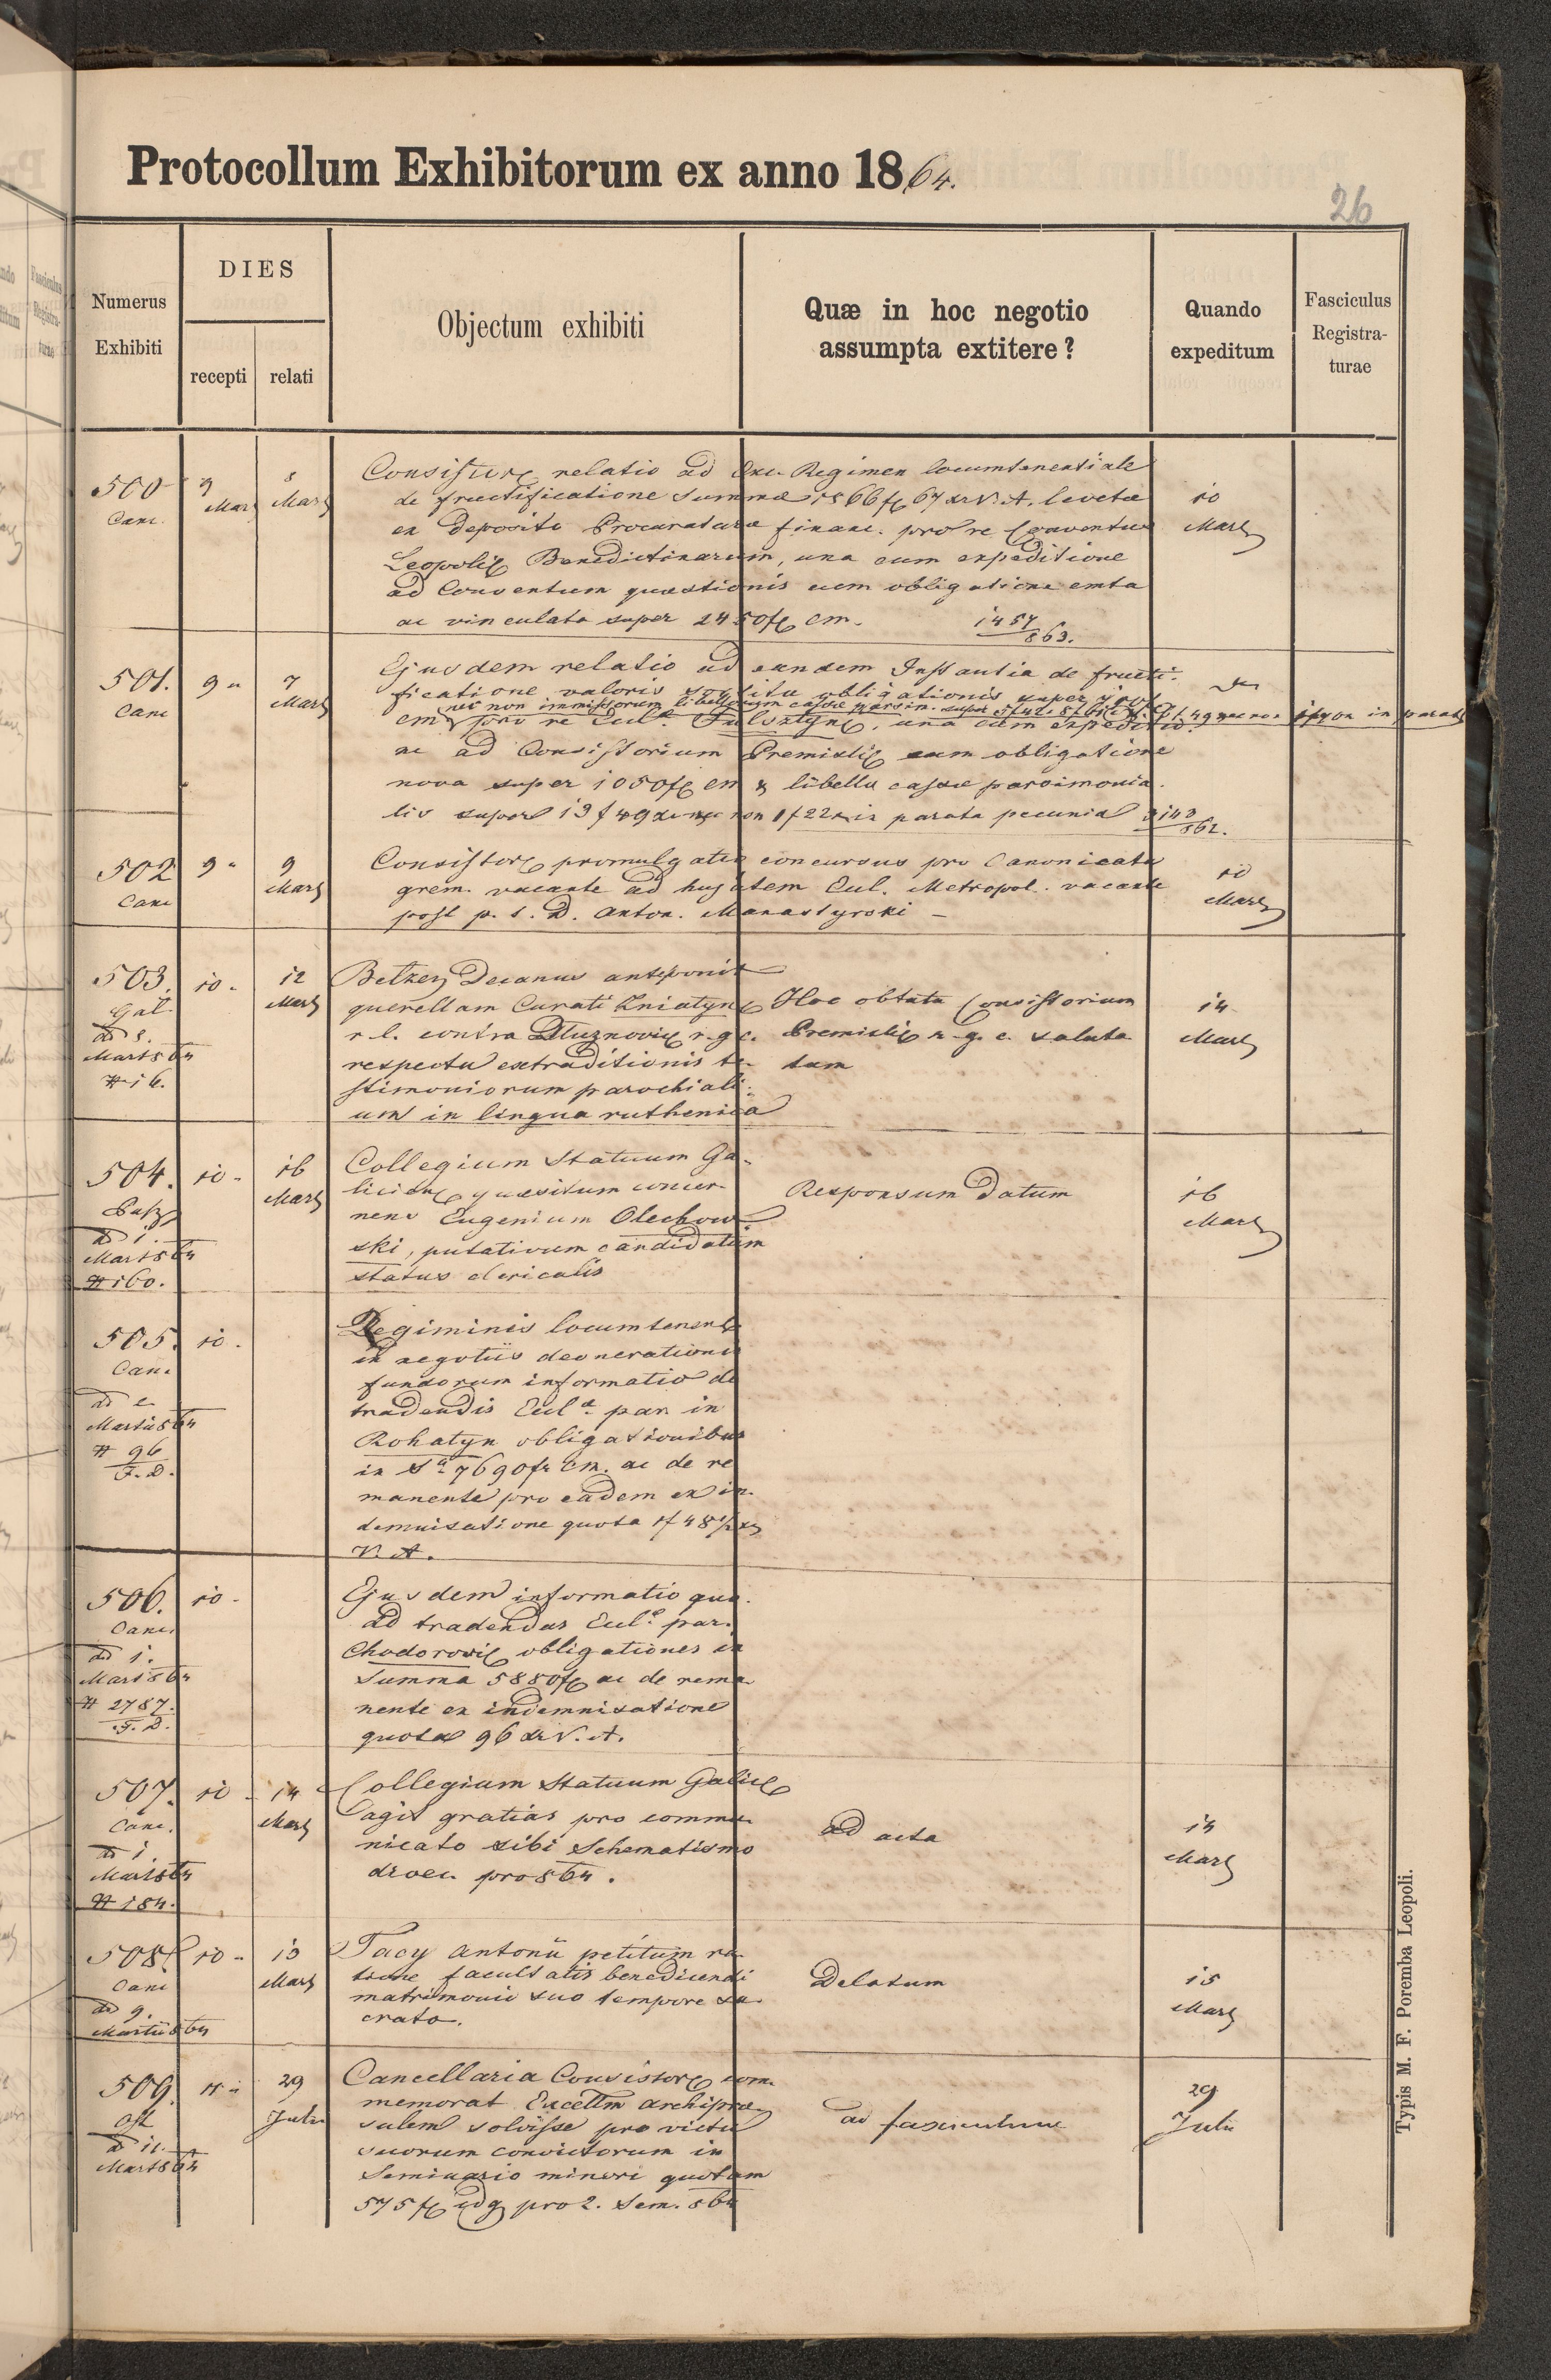 Protocollum Exhibitorum ex anno 1864.
26
Numerus Exhibiti
DIES
recepti
relati
Objectum exhibiti
Quæ in hoc negotio
assumpta extitere?
Quando
expeditum
Fasciculus
Registra-
turae
500
Canc.
9
Mar
8
Mar
relatio ad Exc. Regimen locumtenentiale
de fructificatione Summæ 1866 f 67 xr V. A. levatæ
ex deposito Procuraturæ financ. pro re Conventus
Benedictinarum, una cum expeditione
ad Conventum quæstionis cum obligatione emta
ac vinculata super 2450 f cm.
10
Mar
501.
Canc
9 "
7
Mar
Ejusdem relatio ad eandem Instantia de fructi-
ficatione valoris obligationis super
nec non immissorum libellorum cassæ parsim. super
in parata
cm pro re Eccl. una cum expeditio.
ac ad Consistorium cum obligatione
nova super 1050 f cm & libello cassæ parsimonia-
lis super 13 f 49 xr nec non 1 f 22 xr in parata pecunia
862.
502
Canc
9 "
9
Mar
promulgatio concursus pro Canonicatu
grem. vacante ad hujatem Eccl. Metropol. vacante
post p. s. D. Anton. Manastyrski –
10
Mar
503.
Gal
10 -
12
Mar
Decanus anteponit
querellam Curati
r. l. contra r. g. c.
respectu extraditionis te-
stimoniorum parochiali-
um in lingua ruthenica
Hoc obtutu Consistorium
r. g. c. saluta-
tum
14
Mar
Mart 864
# 16.
504.
10 -
16
Mar
Collegium Statuum Ga-
quæsitum concer-
nens Eugenium Olechow-
ski, putativum candidatum
status clericalis
Responsum datum
16
Mar
dd 1.
Mart 864
# 160.
505.
Canc
10 -
Regiminis
in negotiis deonerationis
fundorum informatio de
tradendis Eccl. par. in
Rohatyn obligationibus
in 7690 f cm. ac de re-
manente pro eadem ex in-
demnisatione quota 1 f 48 1/2 xr
V. A.
Martii 864
# 96
F. D.
506.
Canc.
10 -
Ejusdem informatio quo-
ad tradendas Eccl. par.
obligationes in
Summa 5880 f ac de rema-
nente ex indemnisatione
quota 96 xr V. A.
dd 1.
Mart 864
# 2787.
F. D.
507.
Canc.
10 -
14
Mar
Collegium Statuum
agit gratias pro commu-
nicato sibi Schematismo
dioec. pro 864.
ad acta
14
Mar
dd 1.
Mart 864
# 184.
508
Canc
10 -
15
Mar
Tacy Antonii petitum ra-
tione facultatis benedicendi
matrimonio suo tempore sa-
crato.
Delatum
15
Mar
dd 9.
Martii 864
509.
11 -
29
Julii
Cancellaria com-
memorat
solvisse pro victu
suorum convictorum in
Seminario minori quotam
575 f pro 2. Sem. 864
ad fasciculum
29
Julii
dd 11.
Mart 864
Typis M. F. Poremba Leopoli.